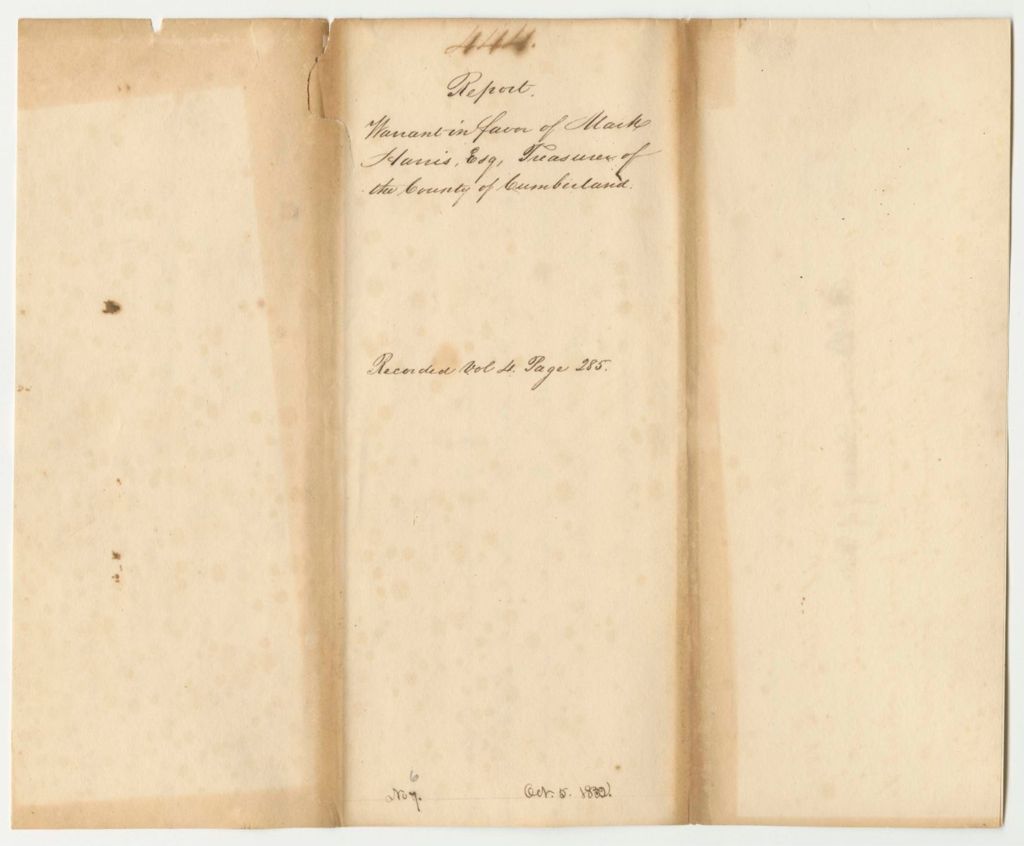 444.
Report.
Warrant in favor of Mark
Harris, Esq, Treasurer of
the County of Cumberland.
Recorded Vol 4. Page 285.
6
No 7.
Oct. 5.